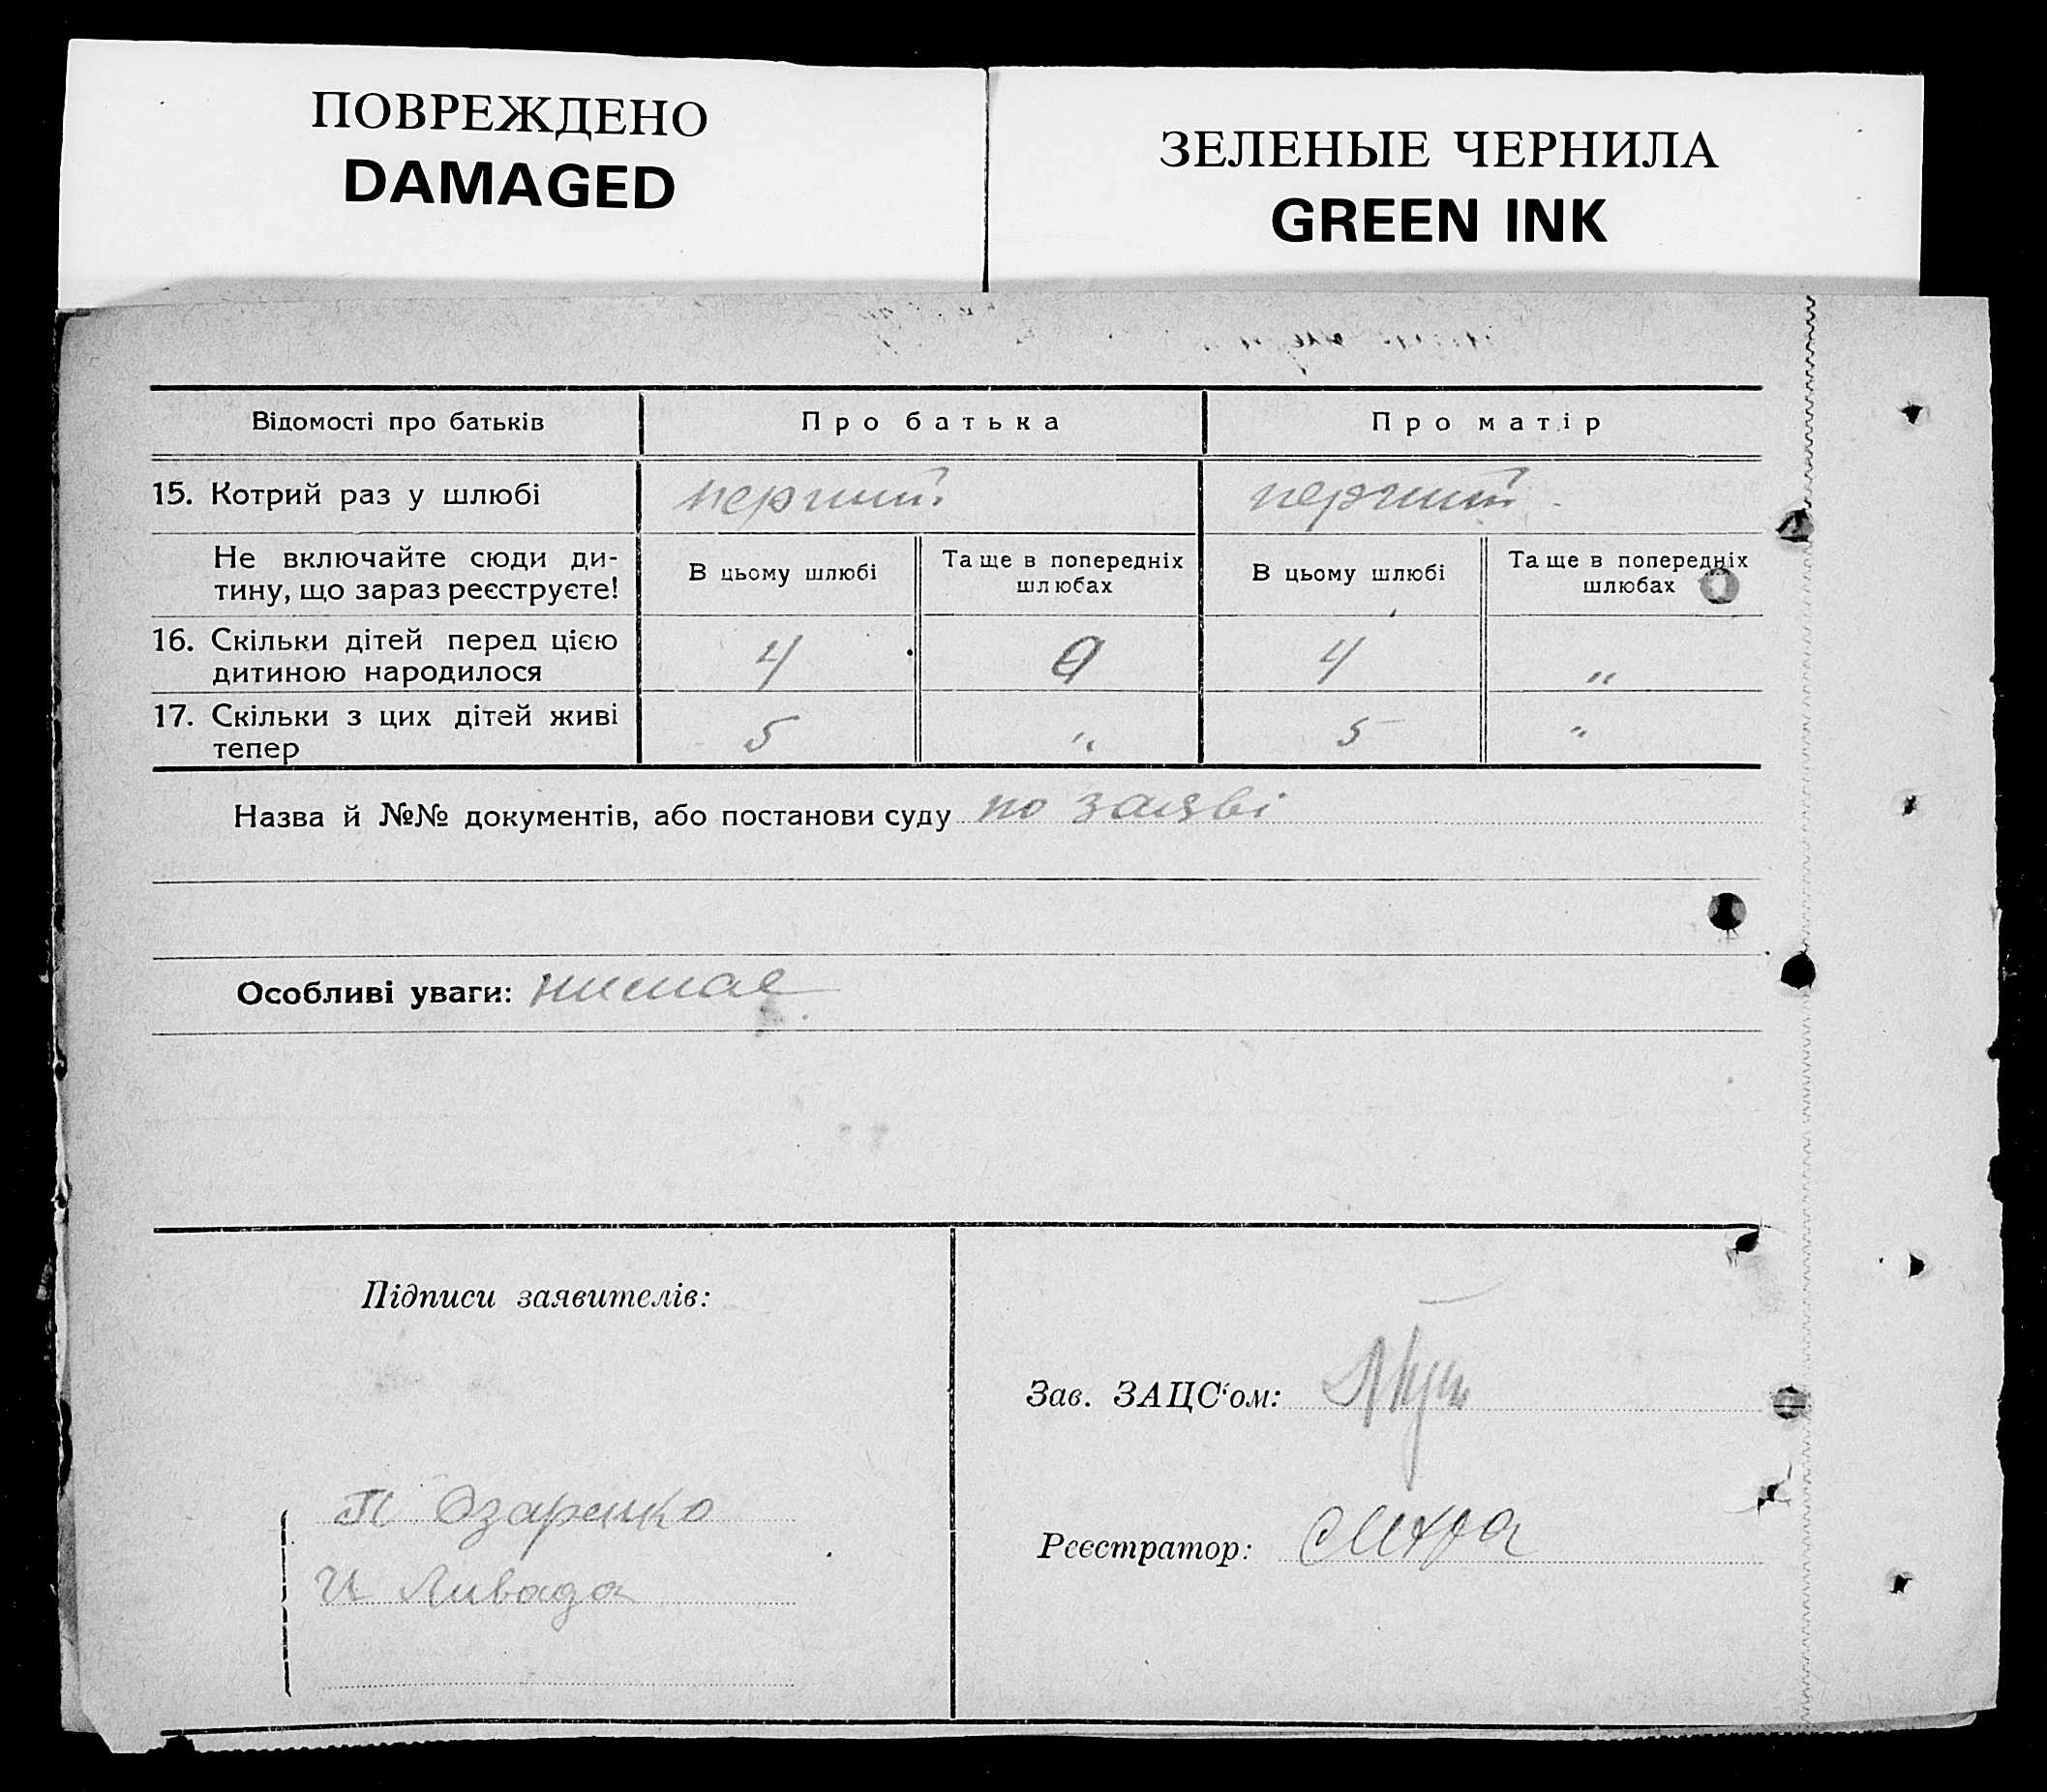 ПОВРЕЖДЕНО
DAMAGED
ЗЕЛЕНЫЕ ЧЕРНИЛА
GREEN INK
Відомості про батьків Про батька Про матір
15. Котрий раз у шлюбі перший перший
Не включайте сюди ди-
тину, що зараз реєструєте!
В цьому шлюбі
Та ще в попередніх
шлюбах
В цьому шлюбі
Та ще в попередніх
шлюбах
16. Скільки дітей перед цією
дитиною народилося
4 4 "
17. Скільки з цих дітей живі
тепер
5 " 5 "
Назва й №№ документів, або постанови суду по заяві
Особливі уваги: нимае
Підписи заявителів:
Зав. ЗАЦС‘ом:
Озаренко
Реєстратор:
И Ливада